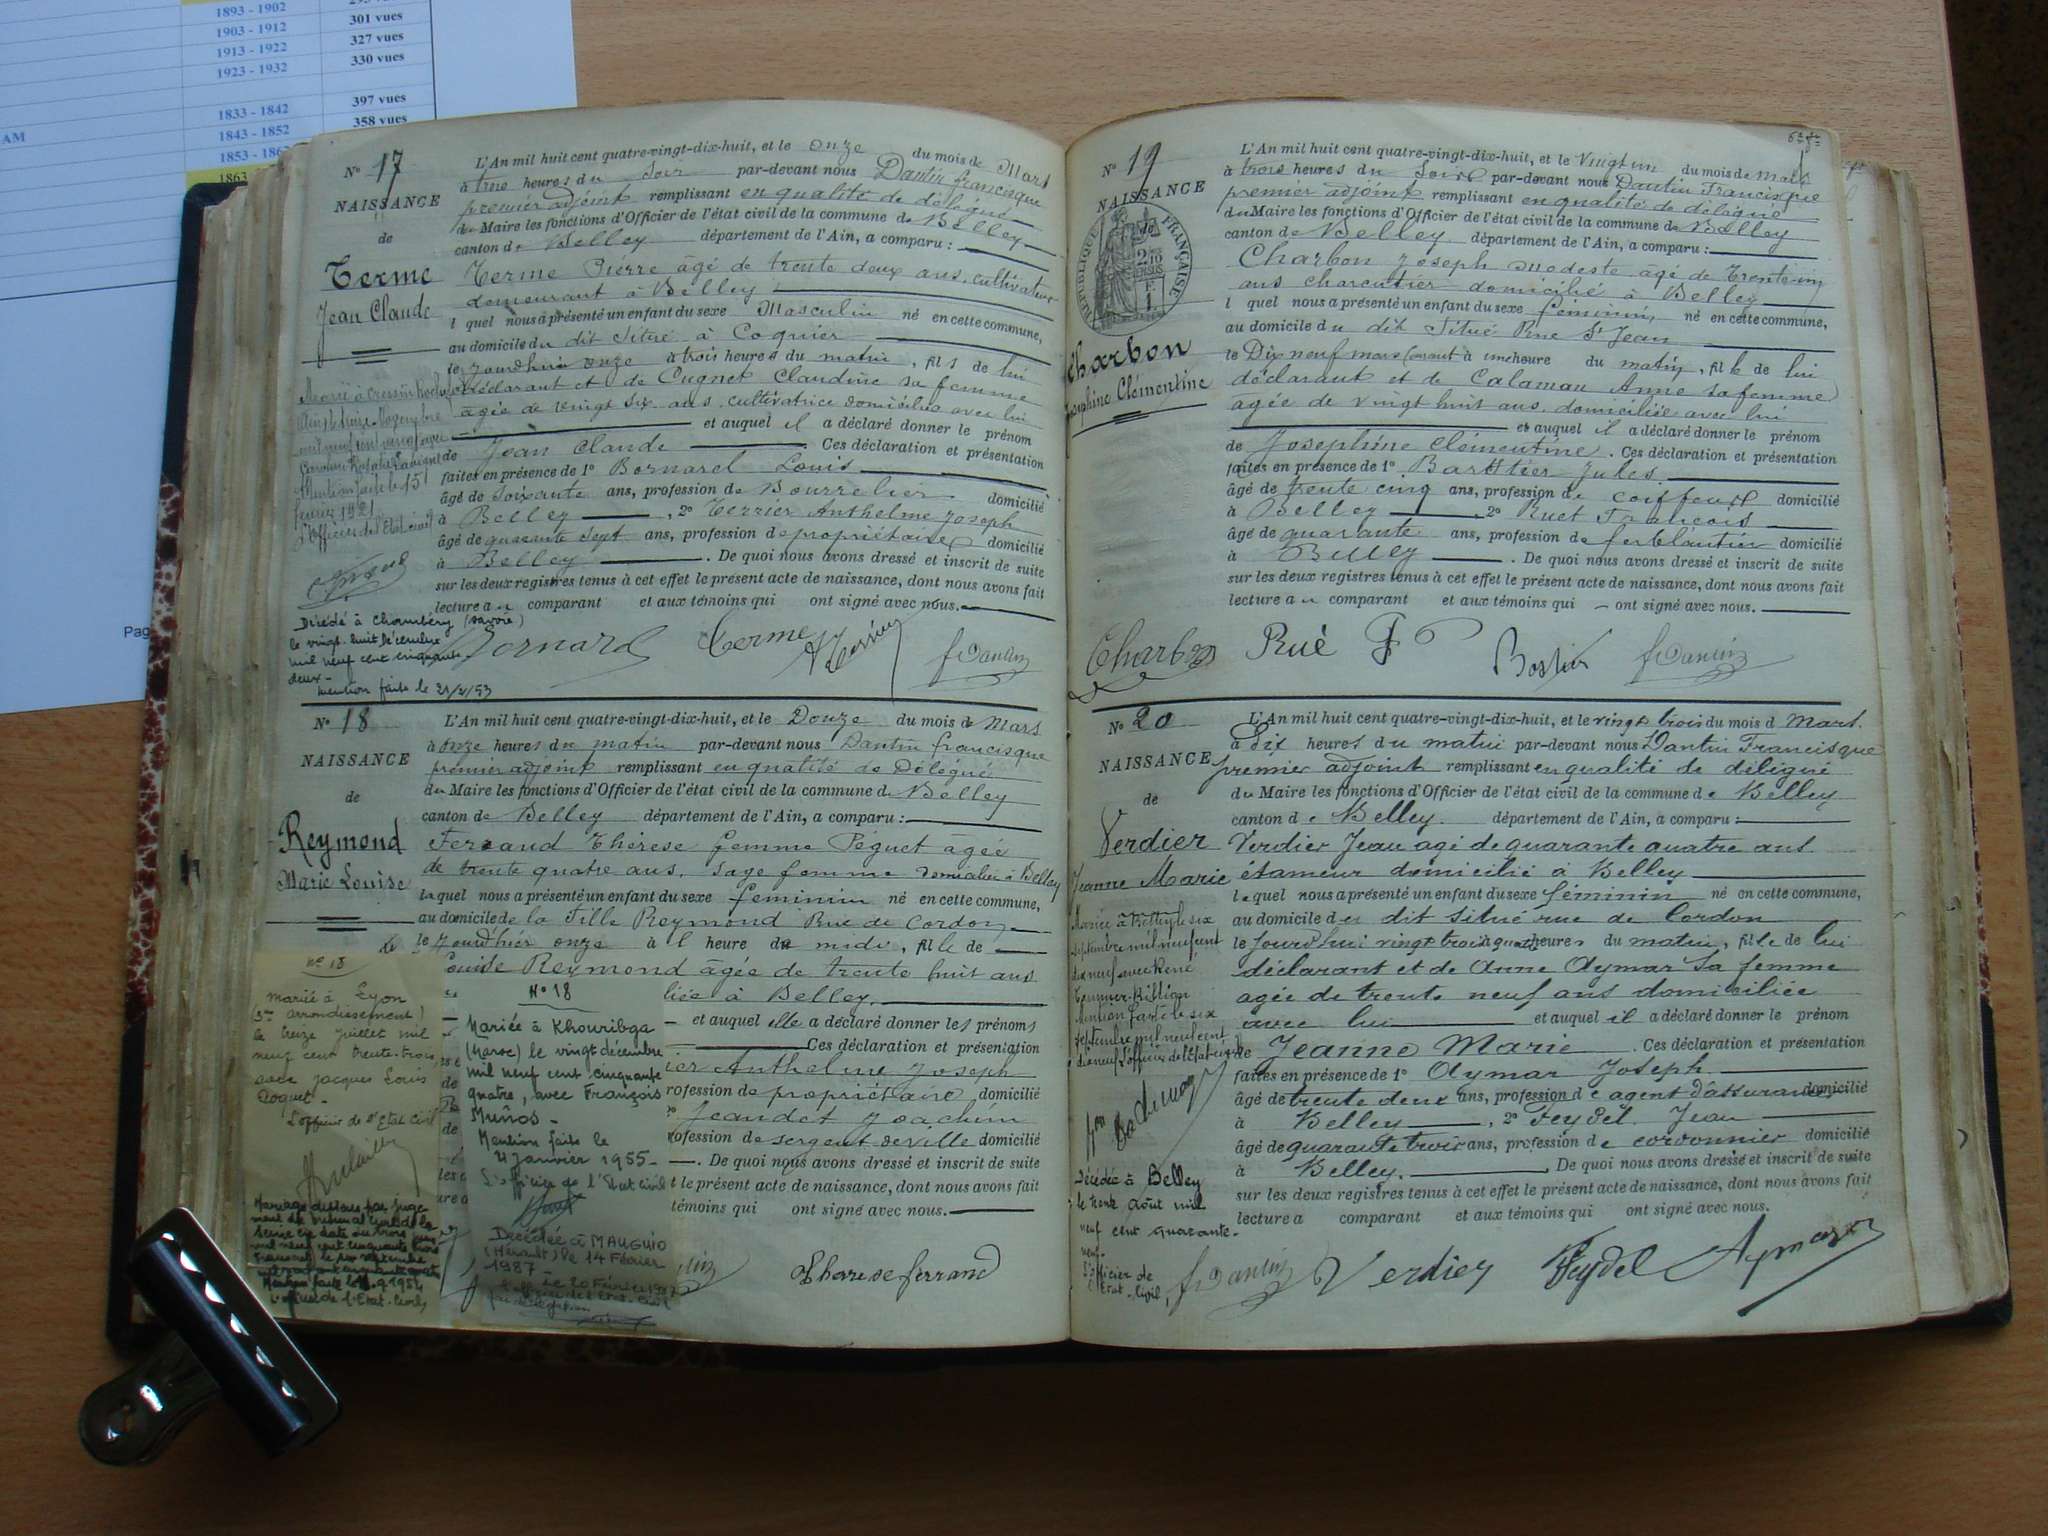 1893 - 1902
1903 - 1912 301 vues
1913 - 1922 327 vues
1923 - 1932 330 vues
1833 - 1842 397 vues
AM 1843 - 1852 358 vues
1853 -
1863
Pag
N° 17
NAISSANCE
de
Terme
Jean Claude
L'An mil huit cent quatre-vingt-dix-huit, et le onze du mois de Mars
à trois heures du soir par-devant nous Dantin francisque
premier adjoint remplissant en qualité de délégué
du Maire les fonctions d'Officier de l'état civil de la commune de Belley
canton de Belley département de l'Ain, a comparu :
Terme Pierre âgé de trente deux ans, cultivateur
demeurant à Belley
l quel nous a présenté un enfant du sexe Masculin né en cette commune,
au domicile du dit situé à Coquier
le jourdhui onze à trois heures du matin, fils de lui
déclarant et de Cugnet Claudine sa femme
agée de vingt six ans cultivatrice domiciliée avec lui
et auquel il a déclaré donner le prénom
de Jean Claude . Ces déclaration et présentation
faites en présence de 1° Bornarel Louis
âgé de soixante ans, profession de Bourrelier domicilié
à Belley , 2° Terrier Anthelme Joseph
âgé de quarante sept ans, profession de propriétaire domicilié
à Belley . De quoi nous avons dressé et inscrit de suite
sur les deux registres tenus à cet effet le présent acte de naissance, dont nous avons fait
lecture au comparant et aux témoins qui ont signé avec nous.
Marié à Cressin Roch
Ain le Novembre
mil neuf cent vingt avec
Caroline
Mention faite le 15
février 1921
L'Officier de l'Etat civil
Décédé à Chambéry (Savoie)
le vingt huit Décembre
mil neuf cent cinquante
deux -
mention faite le 21/2/53
Bornard Terme fDantin
N° 18
NAISSANCE
de
Reymond
Marie Louise
L'An mil huit cent quatre-vingt-dix-huit, et le Douze du mois de Mars
à onze heures du matin par-devant nous Dantin francisque
premier adjoint remplissant en qualité de Délégué
du Maire les fonctions d'Officier de l'état civil de la commune de Belley
canton de Belley département de l'Ain, a comparu :
Ferrand Thérèse femme Péguet âgée
de trente quatre ans, sage femme domiciliée à Belley
laquel nous a présenté un enfant du sexe féminin né en cette commune,
au domicile de la fille Reymond Rue de Cordon
le jourd'hier onze à 1 heure de midi, fille de
Louise Reymond âgée de trente huit ans
liée à Belley.
et auquel elle a déclaré donner les prénoms
Ces déclaration et présentation
ier Anthelme Joseph
rofession de propriétaire domicilié
Jeandet Joachim
rofession de sergent de ville domicilié
. De quoi nous avons dressé et inscrit de suite
t le présent acte de naissance, dont nous avons fait
témoins qui ont signé avec nous.
Thérèse ferrand
n° 18
mariée à Lyon
arrondissement)
le treize Juillet mil
neuf cent trente-trois,
avec Jacques Louis
L'officier de l'Etat Civil
Mariage dissous par juge-
ment du tribunal civil de la
Seine en date du trois
mil neuf cent cinquante trois
L'officier de l'Etat-Civil,
N° 18
Mariée à Khouribga
(Maroc) le vingt décembre
mil neuf cent cinquante
quatre, avec François
Muños -
Mention faite le
4 Janvier 1955 -
L'officier de l'Etat civil
Décédée à MAUGUIO
(Hérault) le 14 Février
1987 -
Le 20 Février 1987
N° 19
NAISSANCE
de
RÉPUBLIQUE FRANÇAISE
2/10 EN SUS
Charbon
Joséphine Clémentine
L'An mil huit cent quatre-vingt-dix-huit, et le Vingt un du mois de Mars
à trois heures du soir par-devant nous Dantin Francisque
premier adjoint remplissant en qualité de délégué
du Maire les fonctions d'Officier de l'état civil de la commune de Belley
canton de Belley département de l'Ain, a comparu :
Charbon Joseph Modeste âgé de Trente un
ans charcutier domicilié à Belley
l quel nous a présenté un enfant du sexe féminin, né en cette commune,
au domicile du dit situé Rue St Jean
le Dix neuf mars courant à une heure du matin, fille de lui
déclarant et de Calaman Anne sa femme
agée de vingt huit ans domiciliée avec lui
et auquel il a déclaré donner le prénom
de Joséphine Clémentine . Ces déclaration et présentation
faites en présence de 1° Jules
âgé de trente cinq ans, profession de coiffeur domicilié
à Belley , 2° Ruet François
âgé de quarante ans, profession de ferblantier domicilié
à Belley . De quoi nous avons dressé et inscrit de suite
sur les deux registres tenus à cet effet le présent acte de naissance, dont nous avons fait
lecture au comparant et aux témoins qui ont signé avec nous.
Charbon Rué F fDantin
N° 20
NAISSANCE
de
Verdier
Jeanne Marie
L'An mil huit cent quatre-vingt-dix-huit, et le vingt trois du mois d Mars.
à Dix heures du matin par-devant nous Dantin Francisque
premier adjoint remplissant en qualité de délégué
du Maire les fonctions d'Officier de l'état civil de la commune de Belley
canton de Belley. département de l'Ain, a comparu :
Verdier Jean agé de quarante quatre ans
étameur domicilié à Belley
lequel nous a présenté un enfant du sexe féminin né en cette commune,
au domicile du dit situé rue de Cordon
le jourd'hui vingt trois à quatre heures du matin, fille de lui
déclarant et de Anne Aymar sa femme
agée de trente neuf ans domiciliée
avec lui et auquel il a déclaré donner le prénom
de Jeanne Marie . Ces déclaration et présentation
faites en présence de 1° Aymar Joseph
âgé de trente deux ans, profession de agent d'assurances domicilié
à Belley , 2° Feydel Jean
âgé de quarante trois ans, profession de cordonnier domicilié
à Belley. De quoi nous avons dressé et inscrit de suite
sur les deux registres tenus à cet effet le présent acte de naissance, dont nous avons fait
lecture a comparant et aux témoins qui ont signé avec nous.
Mariée à le six
septembre mil neuf cent
dix neuf avec René
Mention faite le six
septembre mil neuf cent
dix neuf L'officier de l'Etat civil
Décédée à Belley
le trente Août mil
neuf cent quarante-
neuf-
L'officier de
l'Etat-Civil,
fDantin Verdier Feydel Aymar